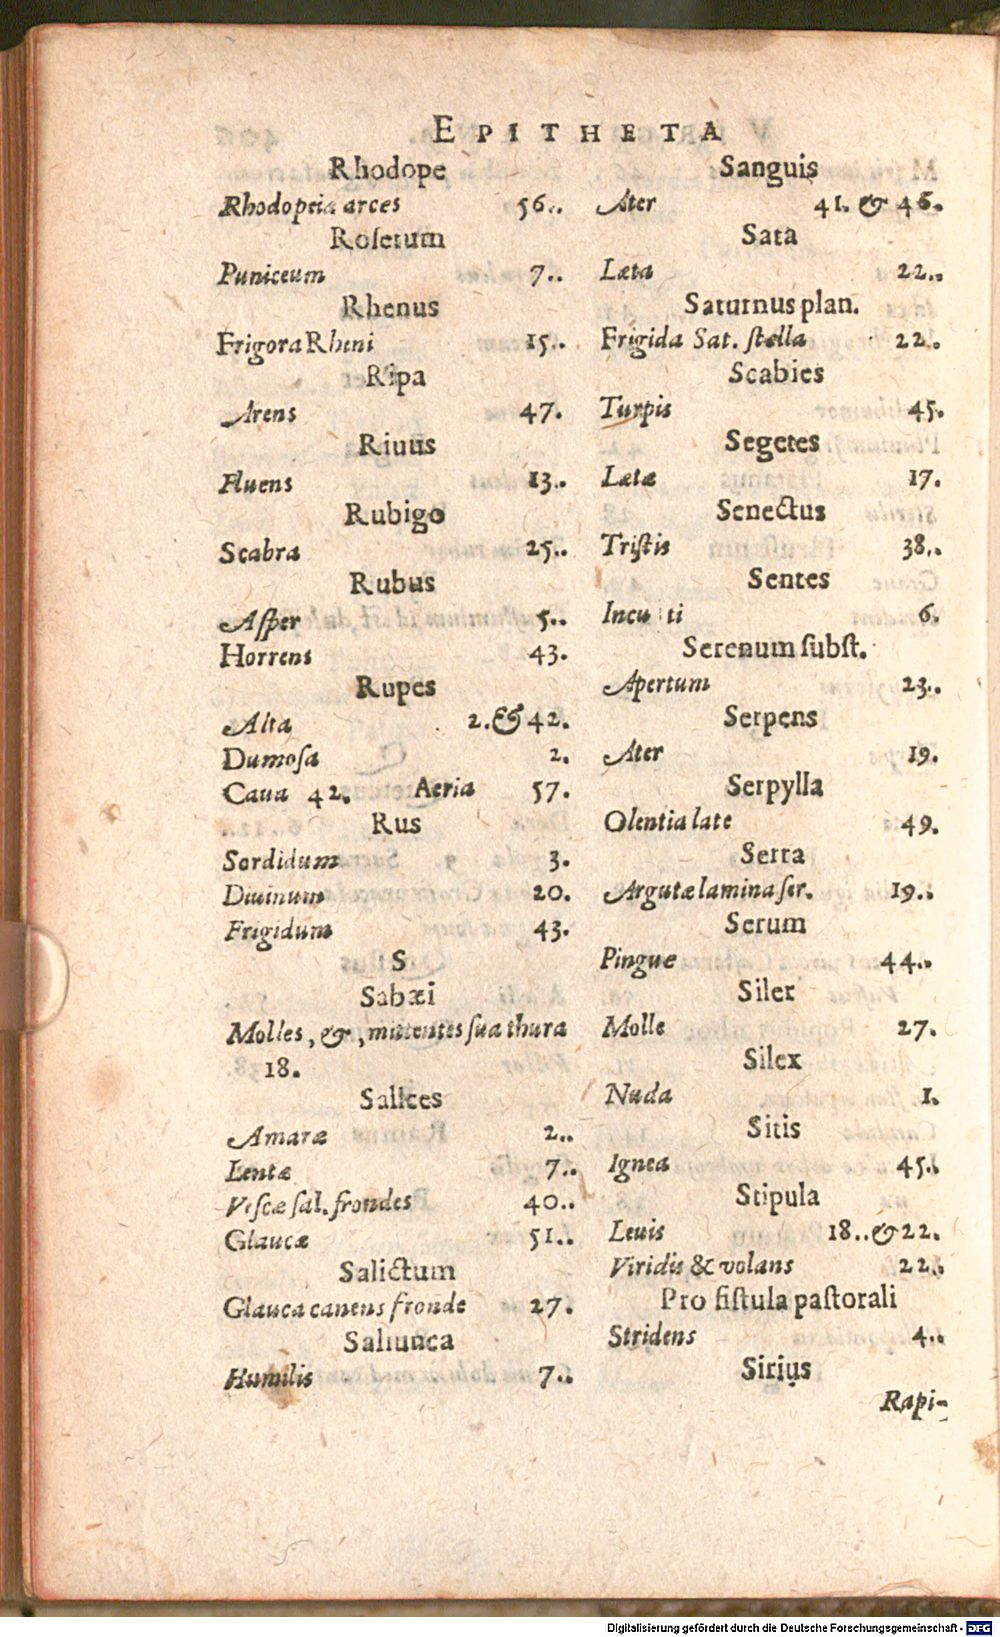 EPITHETA
Rhodope
Rhodopeia arces 56..
Rosetum
Puniceum 7..
Rhenus
Frigora Rheni 15..
Ripa
Arens 47.
Riuus
Fluens 13..
Rubigo
Scabra 25..
Rubus
Asper 5..
Horrens 43.
Rupes
Alta 2. & 42.
Dumosa 2.
Caua 42. Aeria 57.
Rus
Sordidum 3.
Diuinum 20.
Frigidum 43.
S
Sabæi
Molles, &, mittentes sua thura
18.
Salices
Amaræ 2..
Lentæ 7..
Vescæ sal. frondes 40..
Glaucæ 51..
Salictum
Glauca canens fronde 27.
Saliunca
Humilis 7..
Sanguis
Ater 41. & 46.
Sata
Læta 22..
Saturnus plan.
Frigida Sat. stella 22.
Scabies
Turpis 45.
Segetes
Lætæ 17.
Senectus
Tristis 38..
Sentes
Incu ti 6.
Serenum subst.
Apertum 23..
Serpens
Ater 19.
Serpylla
Olentia late 49.
Serra
Argutæ lamina ser. 19..
Serum
Pingue 44..
Siler
Molle 27.
Silex
Nuda 1.
Sitis
Ignea 45..
Stipula
Leuis 18.. & 22.
Viridis & volans 22..
Pro fistula pastorali
Stridens 4..
Sirius
Rapi-
Digitalisierung gefördert durch die Deutsche Forschungsgemeinschaft - DFG